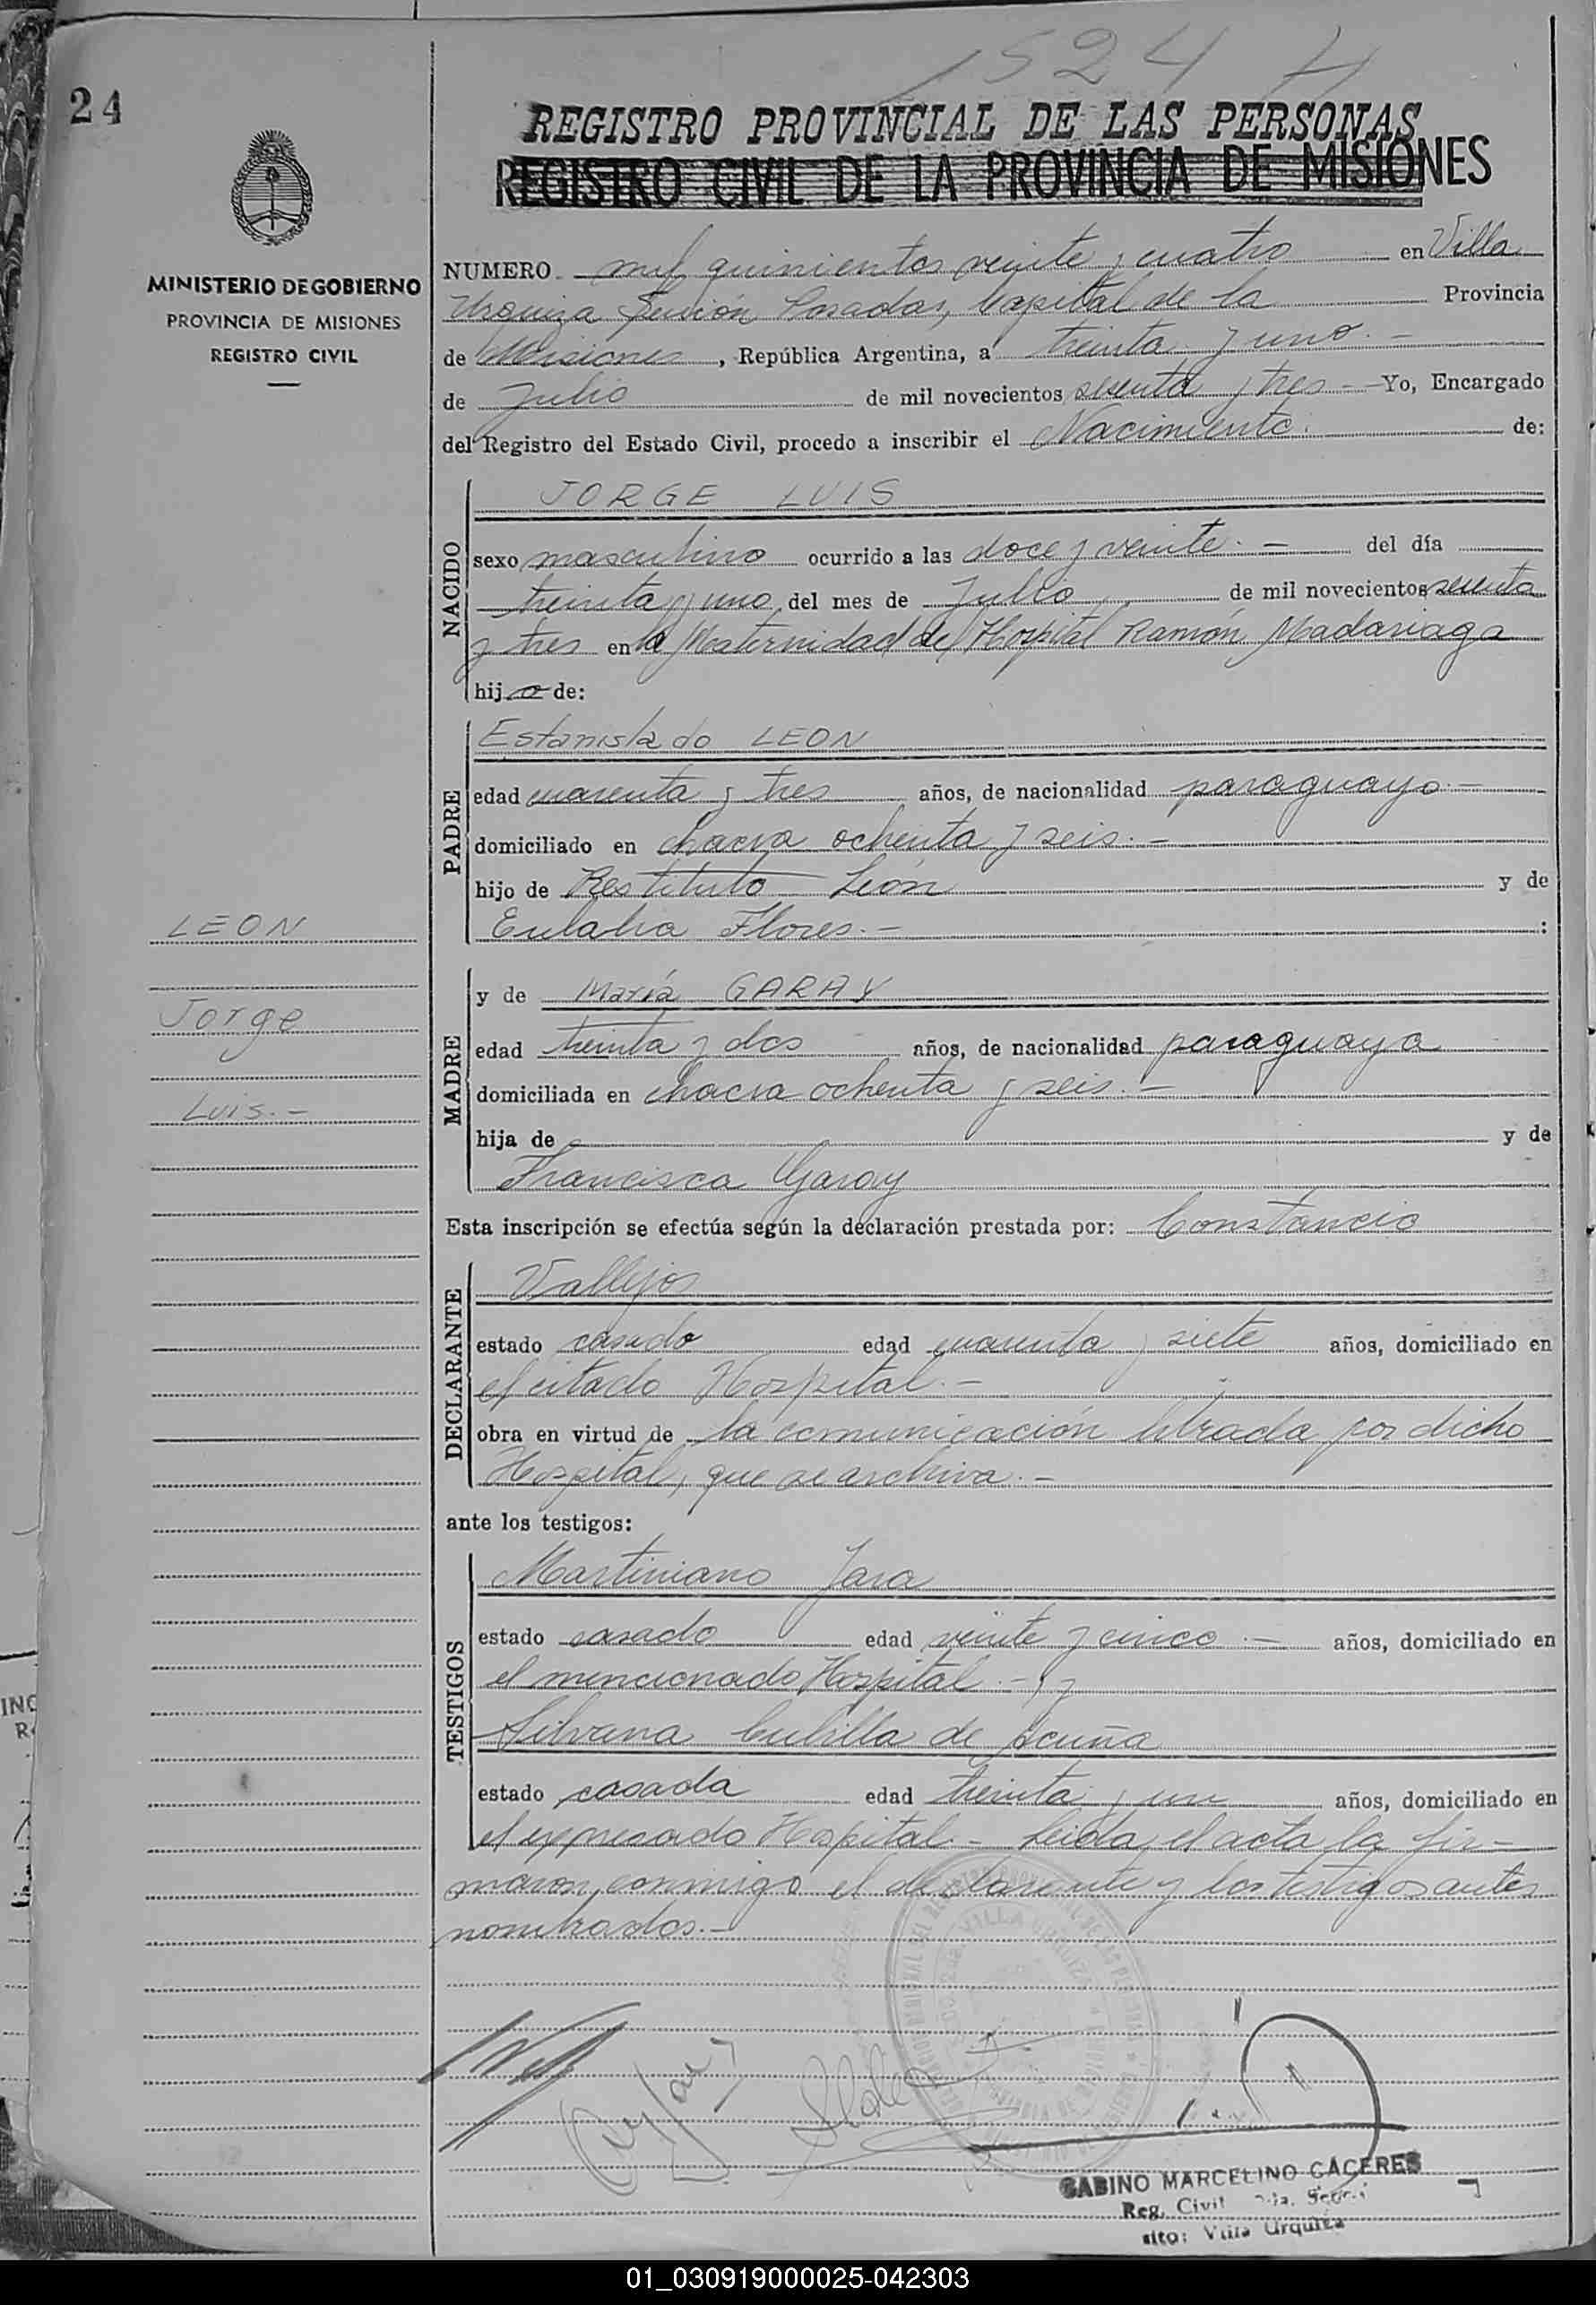 1524 H
24
REGISTRO PROVINCIAL DE LAS PERSONAS
REGISTRO CIVIL DE LA PROVINCIA DE MISIONES
MINISTERIO DE GOBIERNO
PROVINCIA DE MISIONES
REGISTRO CIVIL
NUMERO mil quinientos veinte y cuatro en Villa
Urquiza Posadas, Capital de la Provincia
de Misiones, República Argentina, a treinta y uno.-
de Julio de mil novecientos sesenta y tres - Yo, Encargado
del Registro del Estado Civil, procedo a inscribir el Nacimiento. de:
NACIDO
JORGE LUIS
sexo masculino ocurrido a las doce y veinte.- del día
treinta y uno del mes de Julio de mil novecientos sesenta
y tres en la Maternidad del Hospital Ramón Madariaga
hijo de:
PADRE
Estanislado LEON
edad cuarenta y tres años, de nacionalidad paraguayo.-
domiciliado en chacra ochenta y seis.-
hijo de Restituto León y de
Eulalia Flores.- :
LEON
Jorge
Luis.-
MADRE
y de María GARAY
edad treinta y dos años, de nacionalidad paraguaya
domiciliada en chacra ochenta y seis.-
hija de y de
Francisca Garay
Esta inscripción se efectúa según la declaración prestada por: Constancio
DECLARANTE
Vallejos
estado casado edad cuarenta y siete años, domiciliado en
el citado Hospital.-
obra en virtud de la comunicación librada por dicho
Hospital, que se archiva.-
ante los testigos:
TESTIGOS
Martiniano Jara
estado casado edad veinte y cinco.- años, domiciliado en
el mencionado Hospital.- y
Silvana Cubilla de Acuña
estado casada edad treinta y un años, domiciliado en
el expresado Hospital.- Leida el acta la fir-
maron conmigo el declarante y los testigos antes
nombrados.-
GABINO MARCELINO CACERES
Reg. Civil
Villa Urquiza
01_030919000025-042303